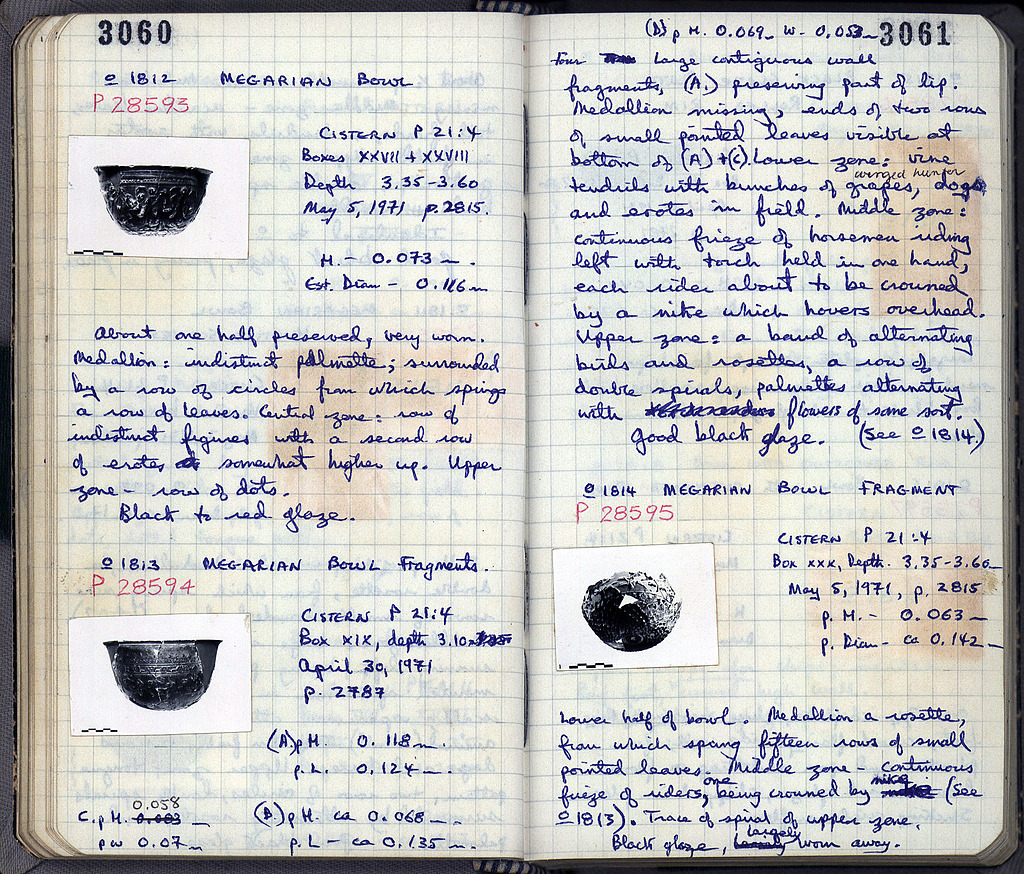 3060
o 1812 MEGARIAN BOWL
P 28593
CISTERN P 21:4
Boxes XXVII + XXVIII
Depth 3.35-3.60
May 5, 1971 p. 2815.
H. - 0.073 m.
Est. Diam - 0.116 m
About one half preserved, very worn.
Medallion: indistinct palmette; surrounded
by a row of circles from which springs
a row of leaves. Central zone: row of
indistinct figures with a second row
of erotes somewhat higher up. Upper
zone - row of dots.
Black to red glaze.
o 1813 MEGARIAN BOWL Fragments.
P 28594
CISTERN P 21:4
Box XIX, depth 3.10
April 30, 1971
p. 2787
(A) p H. 0.118 m.
p. L. 0.124 m.
0.058
C. p H. 0.083 m
pw 0.07 m
p H. ca 0.068 m.
p. L - ca 0.135 m.
3061
(D) p H. 0.069 m W - 0.053 m
four large contiguous wall
fragments, (A) preserving part of lip.
Medallion missing, ends of two rows
of small pointed leaves visible at
bottom of (A) + (C). Lower zone: vine
winged hunter
tendrils with bunches of grapes, dogs
and erotes in field. Middle zone:
continuous frieze of horsemen riding
left with torch held in one hand,
each rider about to be crowned
by a nike which hovers overhead.
Upper zone: a band of alternating
birds and rosettes, a row of
double spirals, palmettes alternating
with flowers of some sort.
Good black glaze. (See o 1814.)
o 1814 MEGARIAN BOWL FRAGMENT
P 28595
CISTERN P 21:4
Box XXX, Depth. 3.35-3.60 m
May 5, 1971, p. 2815
p. H. - 0.063 m
p. Diam - ca 0.142 m
Lower half of bowl. Medallion a rosette,
from which spring fifteen rows of small
pointed leaves. Middle zone - continuous
one nike
frieze of riders, being crowned by (See
o 1813). Trace of spiral of upper zone.
largely
Black glaze, worn away.